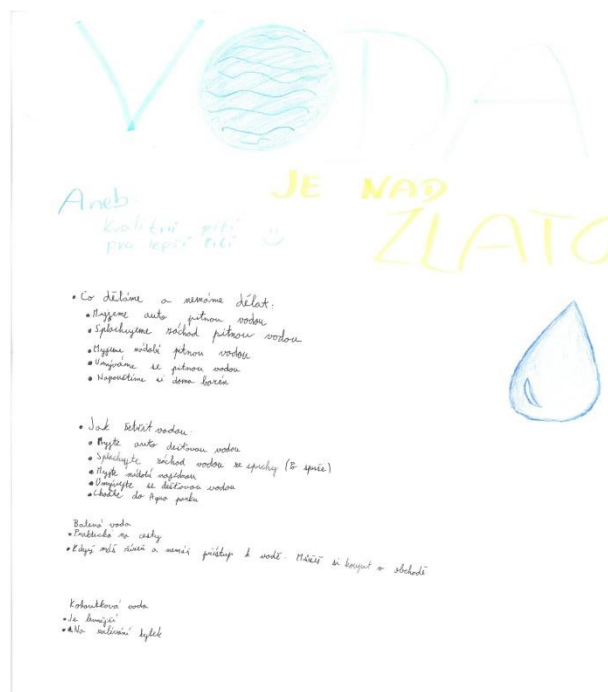 VODA
JE NAD
ZLATO
Aneb
kvalitní pití
pro lepší žití
• Co děláme a nemáme dělat:
• Myjeme auto pitnou vodou
• Splachujeme záchod pitnou vodou
• Myjeme nádobí pitnou vodou
• Umýváme se pitnou vodou
• Napouštíme si doma bazén
• Jak šetřit vodou:
• Myjte auto dešťovou vodou
• Splachujte záchod vodou ze sprchy (z spše)
• Myjte nádobí najednou
• Umývejte se dešťovou vodou
• Choďte do Aqua parku
Balená voda
• Praktická na cesty
• Když máš žízeň a nemáš přístup k vodě. Můžeš si koupit v obchodě
Kohoutková voda
• Je levnější
• Na zalévání kytek